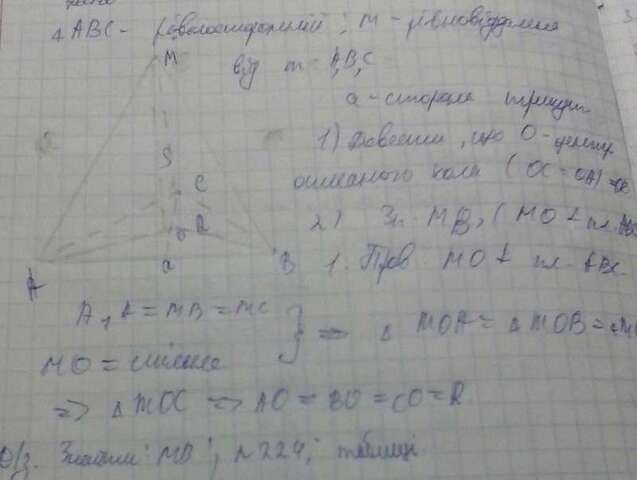 Δ ABC - рівносторонній ; M - рівновіддалена
M від т. A, B, C
a - сторона трикут.
1) Довести, що O - центр
S
описаного кола (OC = OA)
C
2) Зн. MB, (MO ⊥ пл. ABC
O R
B 1. Пров. MO ⊥ пл. ABC.
a
A
A, A = MB = MC
} => Δ MOA = Δ MOB =
MO = спільна
=> Δ MOC => AO = BO = CO = R
Д/з. Знайти MB ; N 224 ; таблиці